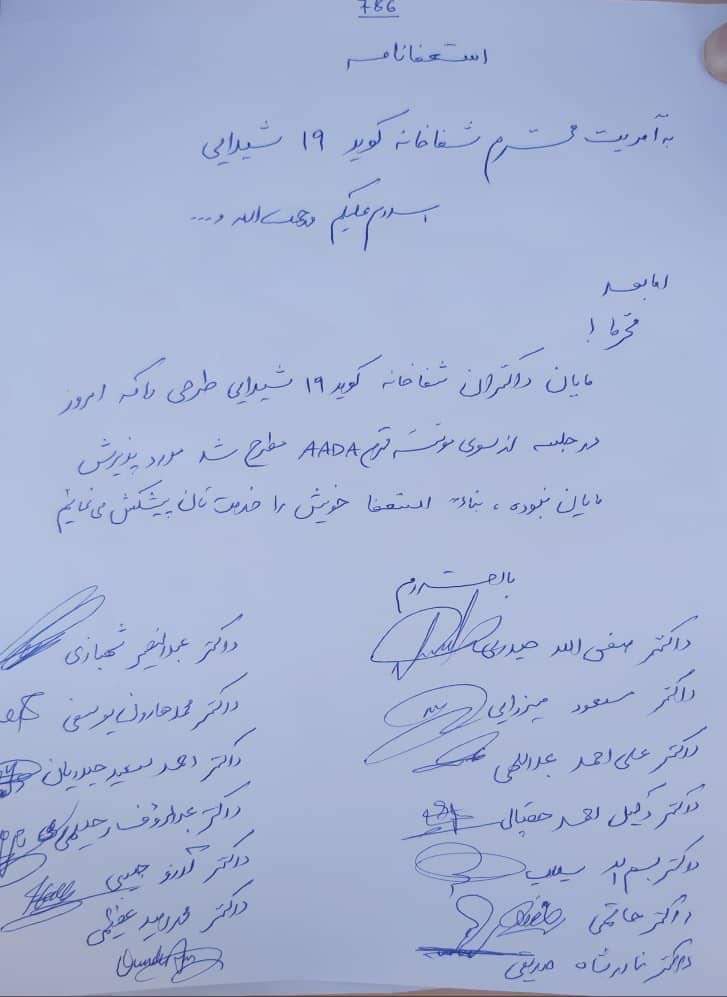 786
استعفانامه
به آمریت محترم شفاخانه کوید ۱۹ شیدایی
السلام علیکم ورحمت الله و...
اما بعد
محترما!
مایان داکتران شفاخانه کوید ۱۹ شیدایی طرحی را که امروز
در جلسه از سوی موسسه محترم AADA مطرح شد مورد پذیرش
مایان نبوده، بناءً استعفا خویش را خدمت تان پیشکش می نمائیم
بااحترام
داکتر صفی الله حیدری
داکتر مسعود میرزایی
داکتر علی احمد
داکتر وکیل احمد حقپال
داکتر بسم الله سیلاب
داکتر حاتمی
داکتر نادرشاه صدیقی
داکتر عبدالنصیر شهبازی
داکتر محمد هارون یوسفی
داکتر احمد سعید حیدریان
داکتر عبدالروف رحیمی
داکتر حبیبی
داکتر عظیمی